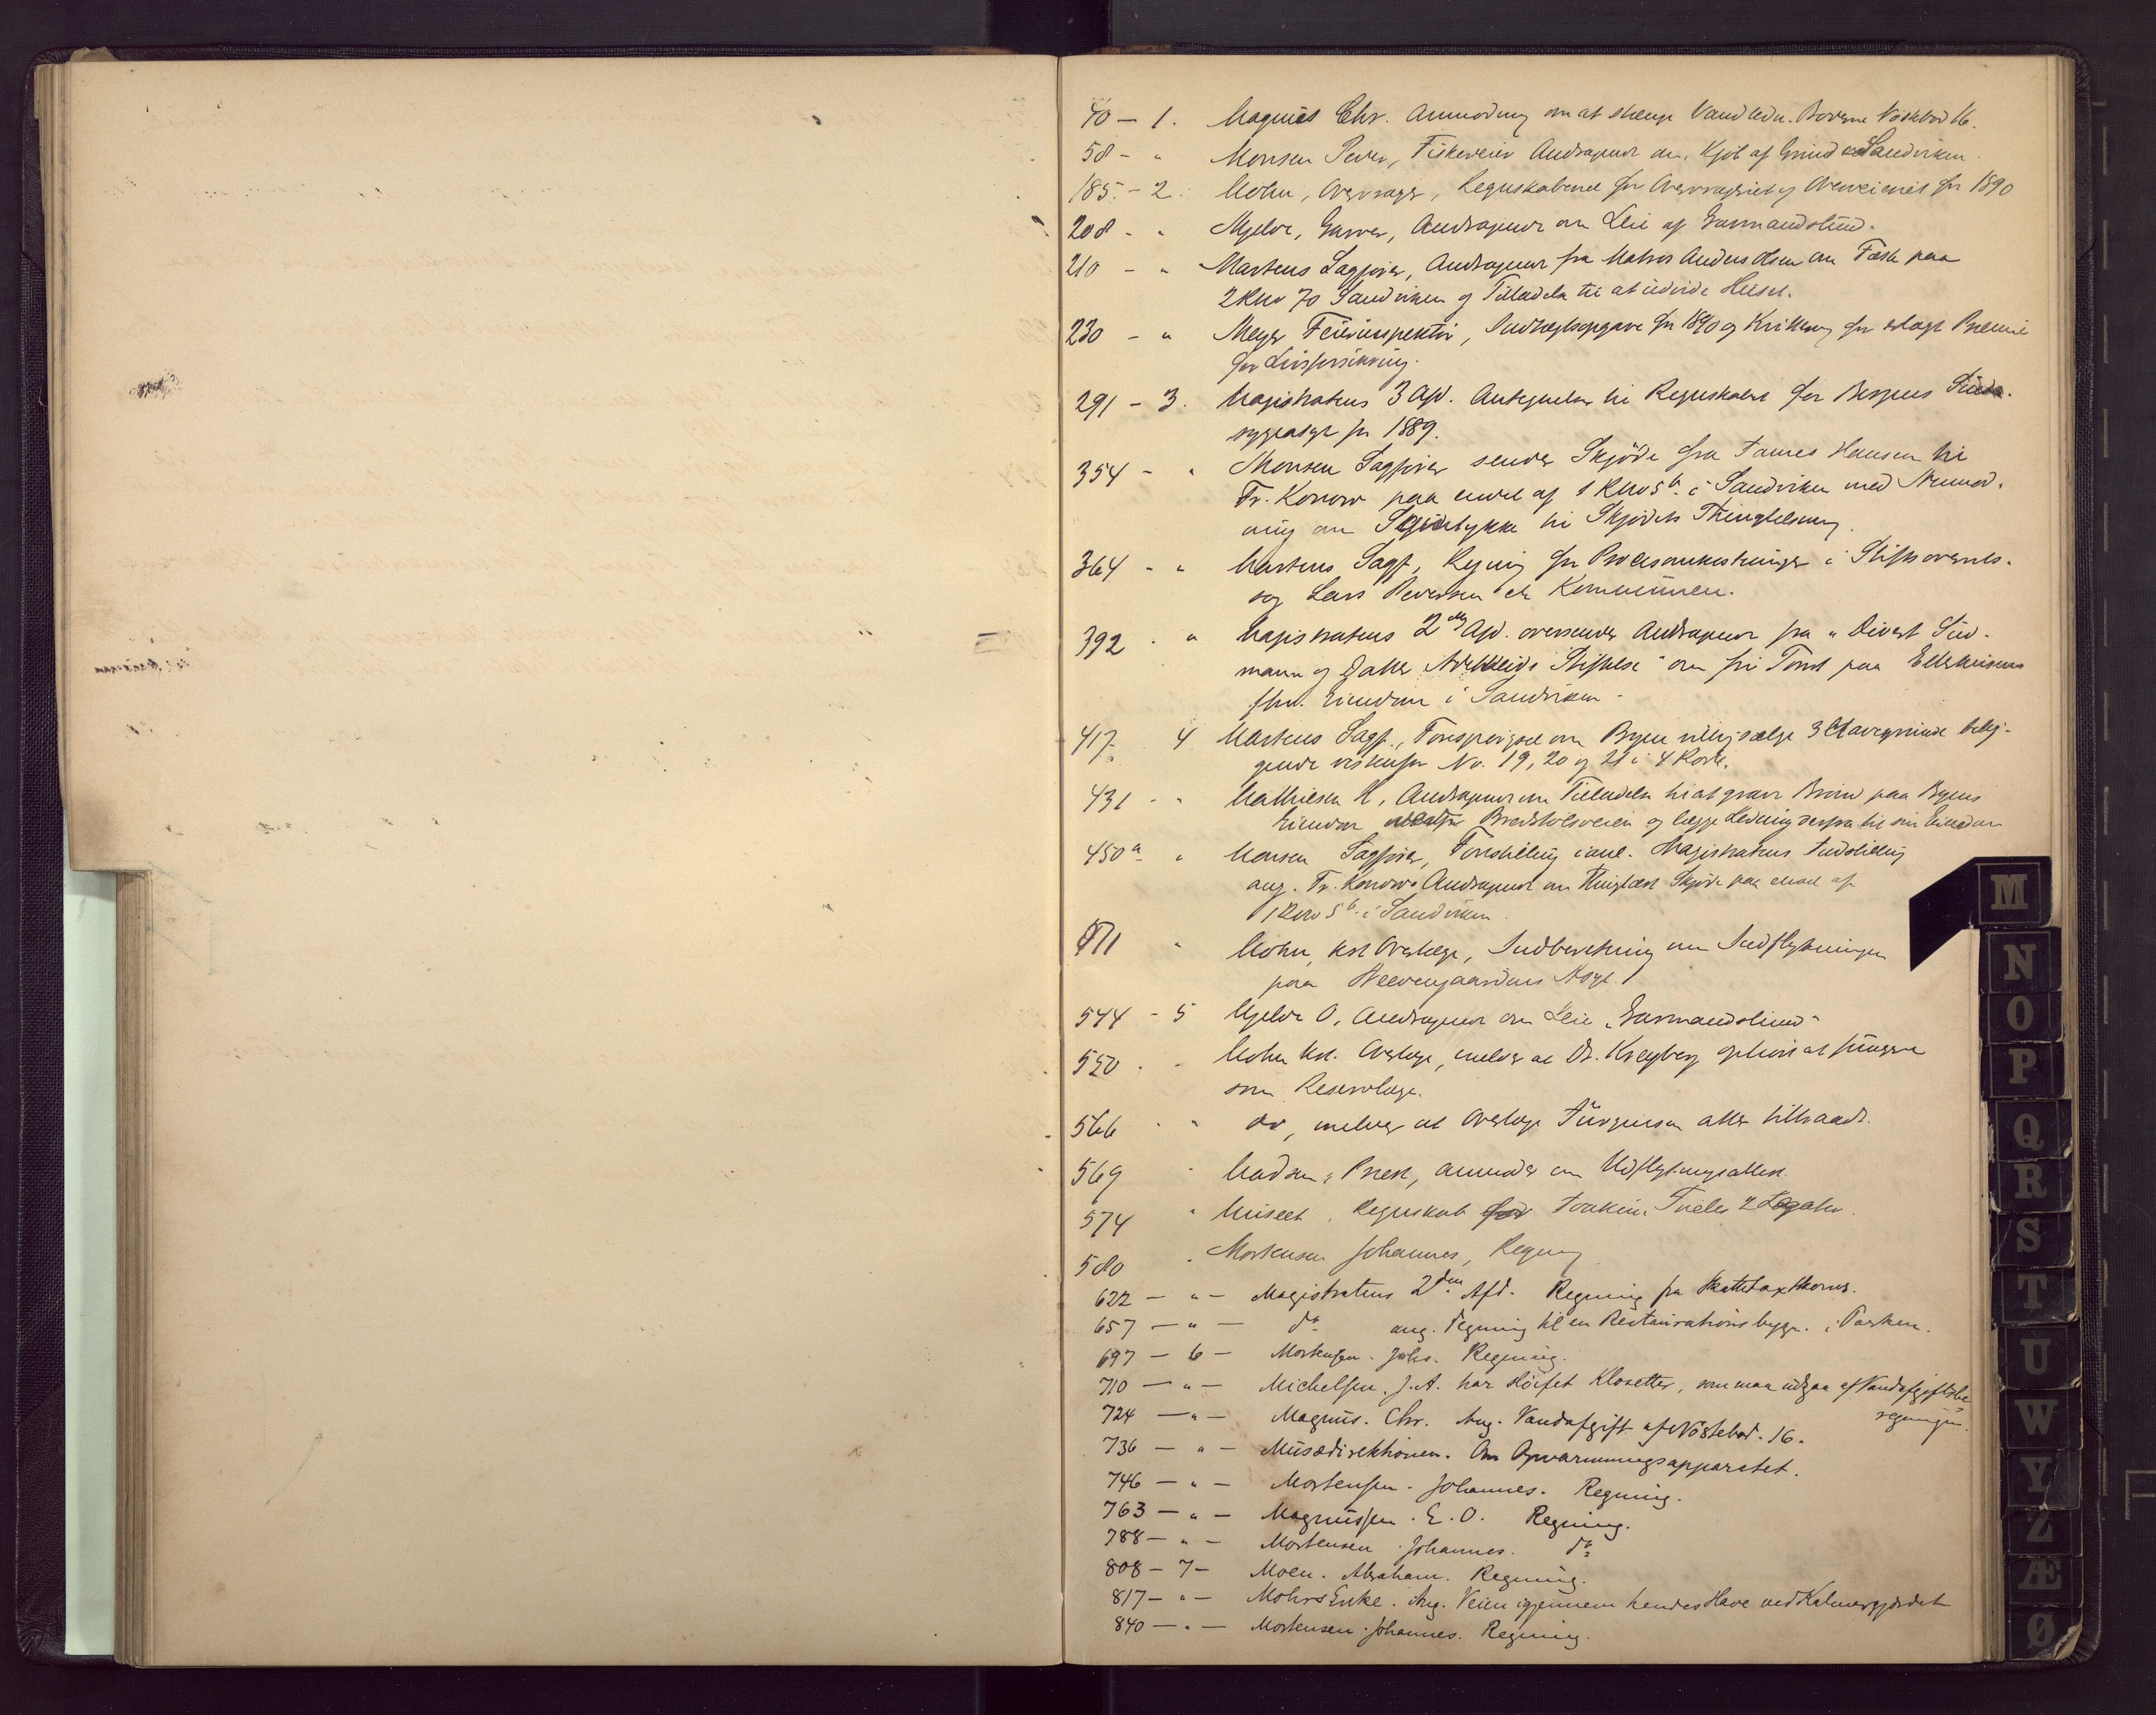 40 – 1. Magnus Chr. Anmodning om at stenge Vandledn. Boderne Nöstebod 16.
58 – " Monsen Peder, Fiskeveier Andragende om Kjöb af Grund ved Sandviken.
185 – 2. Mohn, Overvrager, Regnskaberne for Overvrageriet og Overveieriet for 1890
208 - " Mjelde, Garver, Andragende om Leie af Garmandslund.
210 - " Martens Sagförer, Andragende fra Matros Anders Olsen om Fæste paa
2 Rno 70 Sandviken og Tilladelse til at udvide Huset.
230 - " Meyer Feierinspektör, Indtægtsopgave for 1890 og Kvittering for erlagt Præmie
for Livsforsikring.
291 – 3. Magistratens 3 Afd. Antegnelser til Regnskabet for Bergens Sinds-
sygeasyl for 1889.
354 - " Monsen Sagförer sender Skjöde fra Tönnes Hansen til
Fr. Konow paa endel af 1 Rno 5 b. i Sandviken med Anmod-
ning om Samtykke til Skjödets Thinglæsning.
364 - " Martens Sagf, Regning for Procesomkostninger i Stiftsoverrets-
sag Lars Pedersen ctr Kommunen.
392 - " Magistratens 2den Afd. oversender Andragende fra "Divert Sud-
mann og Datter Adelheids Stiftelse" om fri Tomt paa
Eiendom i Sandviken.
417 4 Martens Sagf., Forespörgsel om Byen vil sælge 3 Havegrunde belig-
gende No. 19, 20 og 21 i 4 Rode.
431 - " Mathiesen H, Andragende om Tilladelse til at grave Brönd paa Byens
Eiendom Bredstolsveien og lægge Ledning derfra til sin Eiendom
450a " Monsen Sagförer, Forestilling i anl. Magistratens Indstilling
ang. Fr. Konows Andragende om Thinglæst Skjöde paa endel af
1 Rno 5 b. i Sandviken.
" Mohn, kst Overlæge, Indberetning om Indflytningen
paa Neevengaardens Asyl.
544 - 5 Mjelde O, Andragende om Leie "Garmandslund"
550 - " Mohn kst. Overlæge, melder at Dr. Kreyberg ophört at fungere
som Reservelæge.
566 - " do, melder at Overlæge Jürgensen atter tiltraadt.
569 " Madsen, Præst, anmoder om Udflytningsattest
574 " Museet, Regnskab for Joakim Frieles 2 Legater.
580 " Mortensen Johannes, Regning
622 – " – Magistratens 2den Afd. Regning fra Skattetaxtkomn.
657 – " – do ang. Tegning til en Restaurationsbygn. i Parken.
697 – 6 – Mortensen. Johs. Regning.
710 – " – Michelsen. J. A. har slöifet Klosetter, som maa udgaa af Vandafgiftsbe
regningen.
724 – " – Magnus. Chr. Ang. Vandafgift af Nöstebod. 16.
736 – " – Musædirektionen. Om Opvarmningsapparatet.
746 – " – Mortensen. Johannes. Regning.
763 – " – Magnussen. E. O. Regning.
788 – " – Mortensen. Johannes. do
808 – 7 – Moen. Abraham. Regning.
817 – " – Mohrs Enke. Ang. Veien igjennem hendes Have ved Kalmargjerdet
840 – " – Mortensen. Johannes. Regning.
M
N
O
P
Q
R
S
T
U
W
Y
Z
Æ
Ø